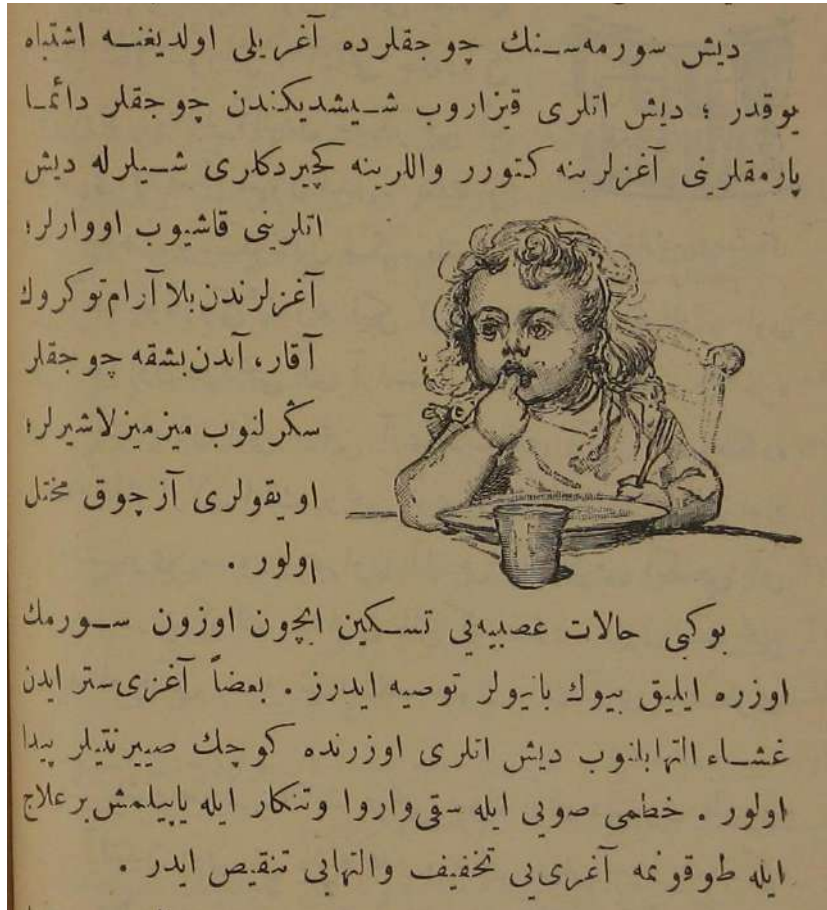 دیش سورمه‌سنك چوجقلرده آغریلی اولدیغنه اشتباه
یوقدر ؛ دیش اتلری قیزاروب شیشدیکندن چوجقلر دائما
پارمقلرینی آغزلرینه کتورر واللرینه کچیردکلری شیلرله دیش
اتلرینی قاشیوب اووارلر؛
آغزلرندن بلا آرام توکروك
آقار، آندن بشقه چوجقلر
سڭرلنوب میزمیزلاشیرلر؛
اویقولری آز چوق مختل
اولور .
بوکبی حالات عصبیه‌یی تسکین ایچون اوزون سورمك
اوزره ایلیق بیوك بانیولر توصیه ایدرز . بعضاً آغزی ستر ایدن
غشاء التهابلنوب دیش اتلری اوزرنده کوچك صییرنتیلر پیدا
اولور . خطمی صویی ایله سقی واروا وتنکار ایله یاپیلمش بر علاج
ایله طوقونمه آغری‌یی تخفیف والتهابی تنقیص ایدر .